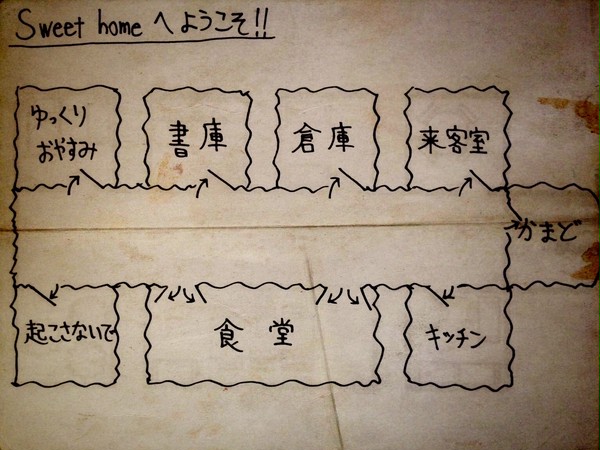 Sweet home へようこそ!!
ゆっくり
おやすみ
書庫
倉庫
来客室
かまど
起こさないで
食堂
キッチン